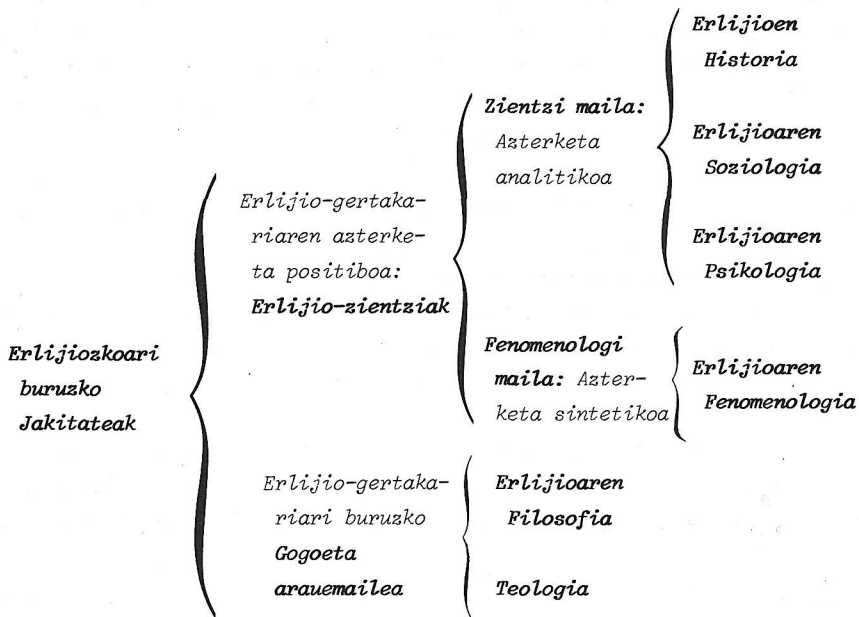 Erlijiozkoari
buruzko
Jakitateak
Erlijio-gertaka-
riaren azterke-
ta positiboa:
Erlijio-zientziak
Zientzi maila:
Azterketa
analitikoa
Erlijioen
Historia
Erlijioaren
Soziologia
Erlijioaren
Psikologia
Fenomenologi
maila: Azter-
keta sintetikoa
Erlijioaren
Fenomenologia
Erlijio-gertaka-
riari buruzko
Gogoeta
arauemailea
Erlijioaren
Filosofia
Teologia